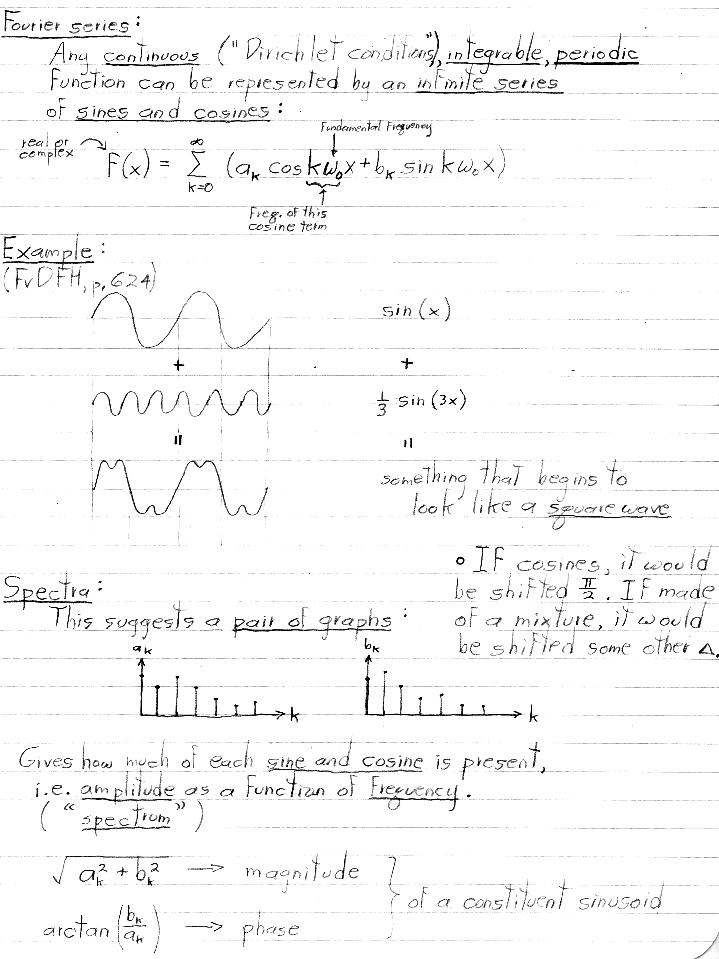 Fourier series:
Any continuous ("Dirichlet conditions"), integrable, periodic
function can be represented by an infinite series
of sines and cosines:
Fundamental Frequency
real or
complex
F(x) = ∞ Σ k=0 (a_k cos kω₀x + b_k sin kω₀x)
Freq. of this
cosine term
Example:
(FvDFH, p. 624)
sin(x)
+ +
1/3 sin(3x)
= =
something that begins to
look like a square wave
• If cosines, it would
be shifted π/2. If made
of a mixture, it would
be shifted some other Δ.
Spectra:
This suggests a pair of graphs:
a_k b_k
k k
Gives how much of each sine and cosine is present,
i.e. amplitude as a function of frequency.
("spectrum")
√(a_k² + b_k²) → magnitude
of a constituent sinusoid
arctan(b_k/a_k) → phase